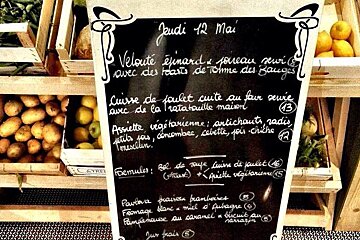 Jeudi 12 Mai
Velouté épinard & poireau servi 5
avec des toasts de tomme des Bauges
Cuisse de poulet cuite au four servie
avec de la ratatouille maison 13
Assiette végétarienne : artichauts, radis,
petits pois, concombre, cebette, pois chiche
mesclun. 12
Formules : Bol de soupe Cuisse de poulet 16
+ Assiette végétarienne 15
Pavlova fraises framboises
Fromage blanc & miel d'Aubagne
Pamplemousse au caramel & biscuit au
Jus frais